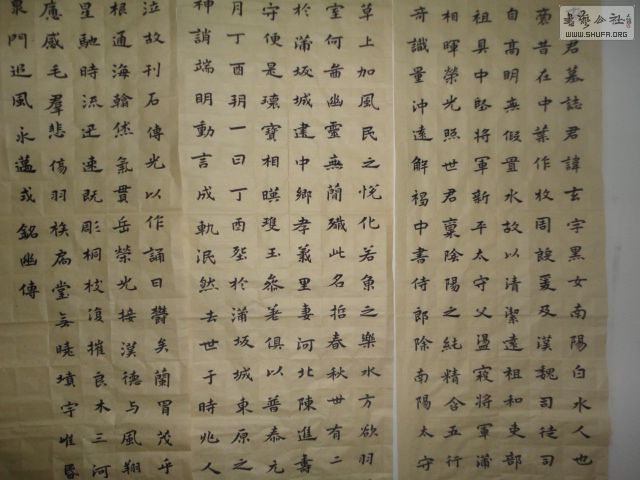 君墓誌君諱玄字黑女南陽白水人也
裔昔在中葉作牧周殷爰及漢魏司徒司
自高明無假置水故以清潔遠祖和吏部
祖具中堅將軍新平太守父盪寇將軍蒲
相暉榮光照世君稟陰陽之純精含五行
奇識量沖遠解褐中書侍郎除南陽太守
草上加風民之悅化若魚之樂水方欲羽
室何啚幽靈無簡殲此名喆春秋卅有二
於蒲坂城建中鄉孝義里妻河北陳進壽
守便是瓌寶相暎雙玉參差俱以普泰元
月丁酉玥一日丁酉塟於蒲坂城東原之
神誚端明動言成軌泯然去世于時兆人
泣故刊石傳光以作誦曰欝矣蘭胄茂乎
根通海翰烋氣貫岳榮光接漢德与風翔
星馳時流迅速既彫桐枝復摧良木三河
應感毛羣悲傷羽族扃堂無曉墳宇唯昏
泉門追風永邁式銘幽傳
書藝公社
WWW.SHUFA.ORG